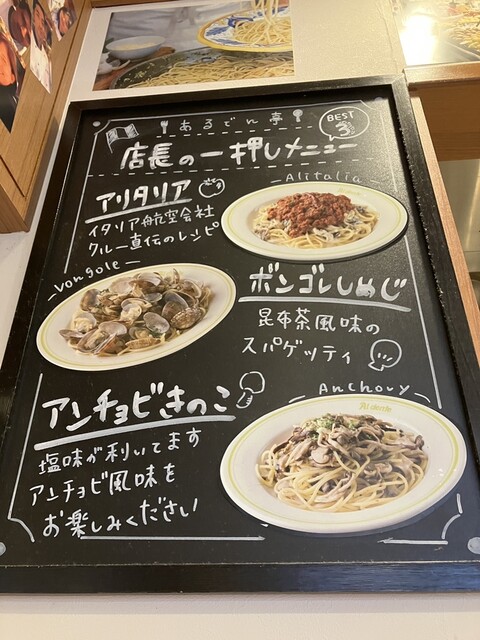 あるでん亭
BEST
3
店長の一押しメニュー
アリタリア
Alitalia
イタリア航空会社
クルー直伝のレシピ
Vongole
ボンゴレしめじ
昆布茶風味の
スパゲッティ
アンチョビきのこ
Anchovy
塩味が利いてます
アンチョビ風味を
お楽しみください
Al dente